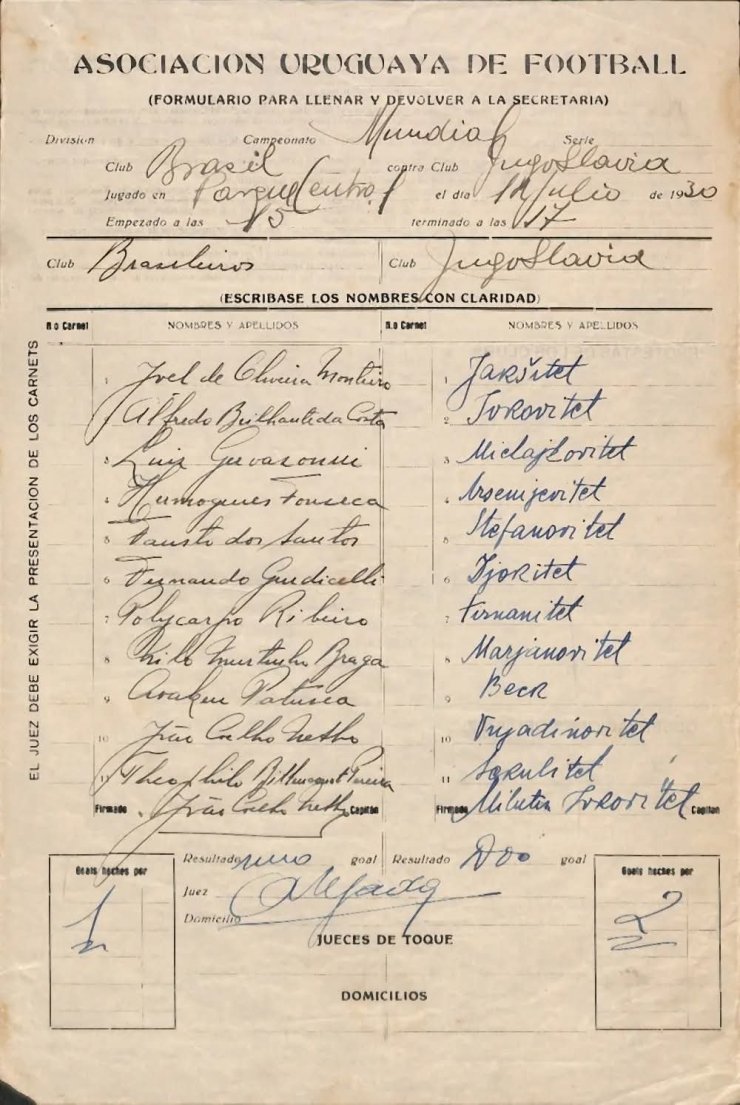 ASOCIACION URUGUAYA DE FOOTBALL
(FORMULARIO PARA LLENAR Y DEVOLVER A LA SECRETARIA)
Division Campeonato Mundial Serie
Club Brasil contra Club JugoSlavia
Jugado en Parque Central el dia 14 Julio de 1930
Empezado a las 15 terminado a las 17
Club Brasileiros Club JugoSlavia
(ESCRIBASE LOS NOMBRES CON CLARIDAD)
N.o Carnet NOMBRES Y APELLIDOS N.o Carnet NOMBRES Y APELLIDOS
EL JUEZ DEBE EXIGIR LA PRESENTACION DE LOS CARNETS
1 Joel de Oliveira Monteiro 1 Jakšitet
Alfredo Brilhante da Costa 2 Ivkovitet
3 Luiz Gervazonni 3 Michajlovitet
4 Hermogenes Fonseca 4 Arsenijevitet
5 Fausto dos Santos 5 Stefanovitet
6 Fernando Giudicelli 6 Djokitet
7 Polycarpo Ribeiro 7 Tirnanitet
8 Nilo Murtinho Braga 8 Marjanovitet
9 Araken Patusca 9 Beck
10 João Coelho Netto 10 Vujadinovitet
11 Theophilo Bittencourt Pereira 11 Sekulitet
Firmado João Coelho Netto Capitán Firmado Milutin Ivkovitet Capitan
Resultado uno goal Resultado Dos goal
Goals heches por 1 Goals heches por 2
Juez
Domicilio
JUECES DE TOQUE
DOMICILIOS